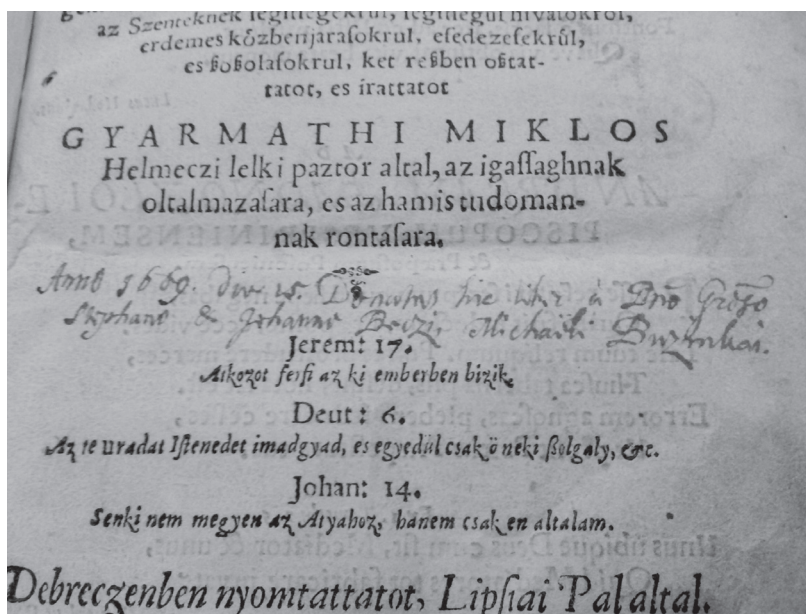 az Szenteknek segitsegekrül, segitsegül hivasokrol,
erdemes közbenjarasokrul, esedezesekrül,
es ßoßolasokrul, ket reßben oßtat-
tatot, es irattatot
GYARMATHI MIKLOS
Helmeczi lelki paztor altal, az igaſſaghnak
oltalmazaſara, es az hamis tudoman-
nak rontaſara.
Anno 1669. die 15. Donatus hic liber à Dno Groſo
Stephano & Johanne Beczi, Michaeli Buzinkai.
Jerem: 17.
Atkozot ferfi az ki emberben bizik.
Deut: 6.
Az te uradat Iſtenedet imadgyad, es egyedül csak ö neki ßolgaly, &c.
Johan: 14.
Senki nem megyen az Atyahoz, hanem csak en altalam.
Debreczenben nyomtattatot, Lipſiai Pal altal.